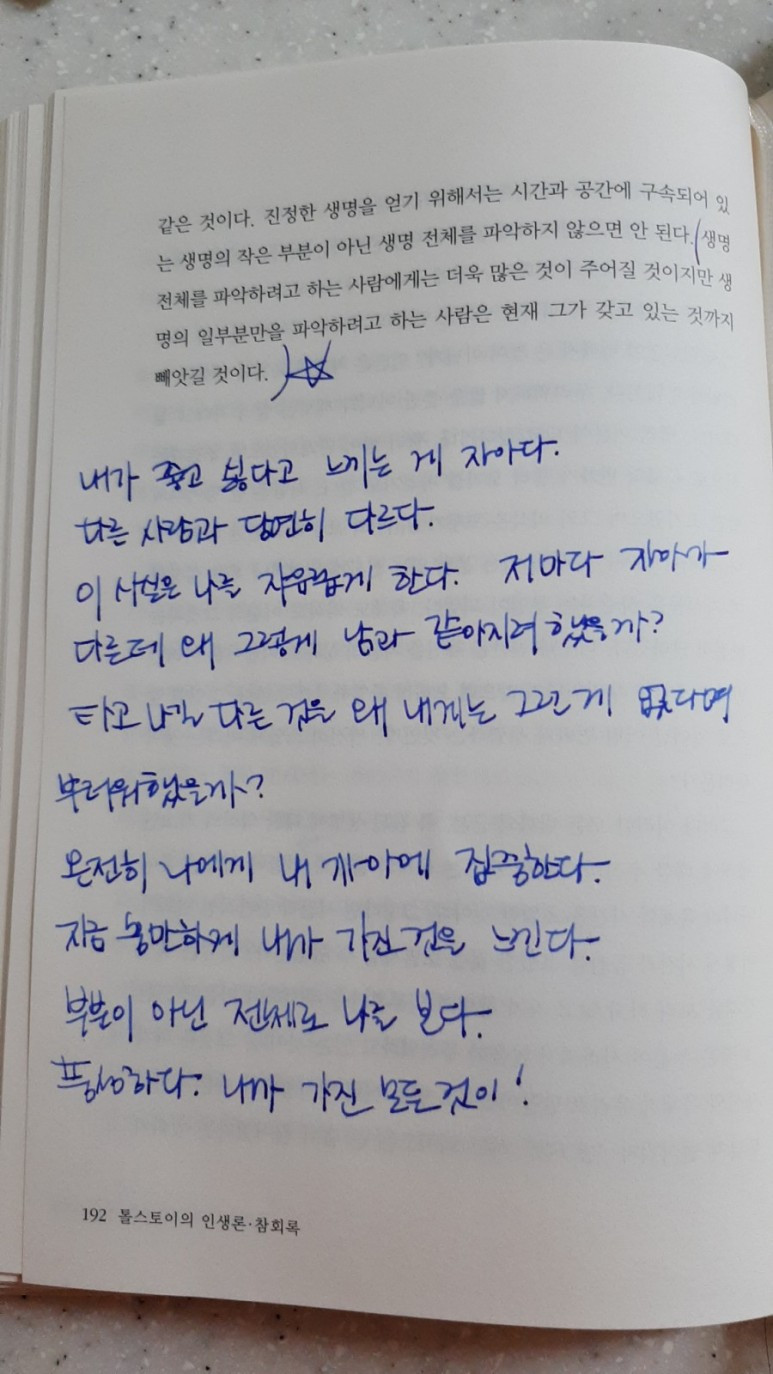 같은 것이다. 진정한 생명을 얻기 위해서는 시간과 공간에 구속되어 있
는 생명의 작은 부분이 아닌 생명 전체를 파악하지 않으면 안 된다. 생명
전체를 파악하려고 하는 사람에게는 더욱 많은 것이 주어질 것이지만 생
명의 일부분만을 파악하려고 하는 사람은 현재 그가 갖고 있는 것까지
빼앗길 것이다.
내가 좋고 싫다고 느끼는 게 자아다.
다른 사람과 당연히 다르다.
이 사실은 나를 자유롭게 한다. 저마다 자아가
다른데 왜 그렇게 남과 같아지려 했을까?
타고 나길 다른 것을 왜 내게는 그런 게 없다며
부러워했을까?
온전히 나에게 내 자아에 집중한다.
지금 충만하게 내가 가진 것을 느낀다.
부분이 아닌 전체로 나를 본다.
풍성하다. 내가 가진 모든 것이!
192 톨스토이의 인생론·참회록